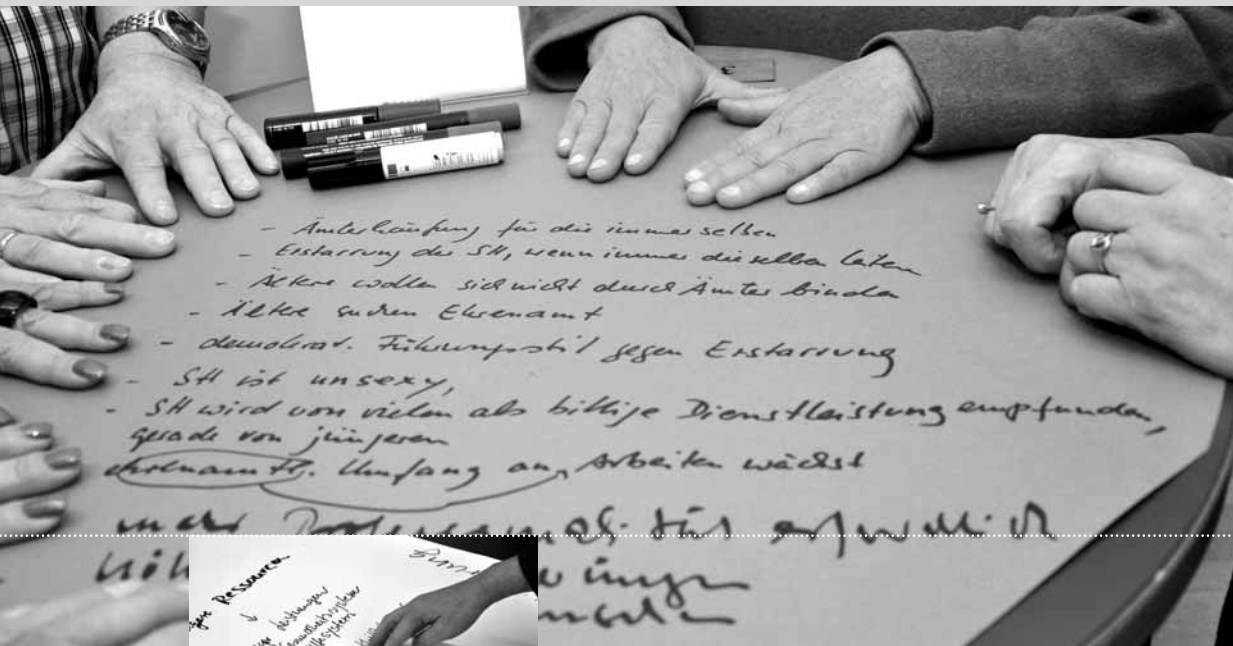 - Ämterhäufung für die immer selben
- Erstarrung der SH, wenn immer dieselben leiten
- Ältere wollen sich nicht durch Ämter binden
- Ältere suchen Ehrenamt
- demokrat. Führungsstil gegen Erstarrung
- SH ist unsexy,
- SH wird von vielen als billige Dienstleistung empfunden,
gerade von jüngeren
ehrenamtl. Umfang an Arbeiten wächst
mehr
Ressourcen